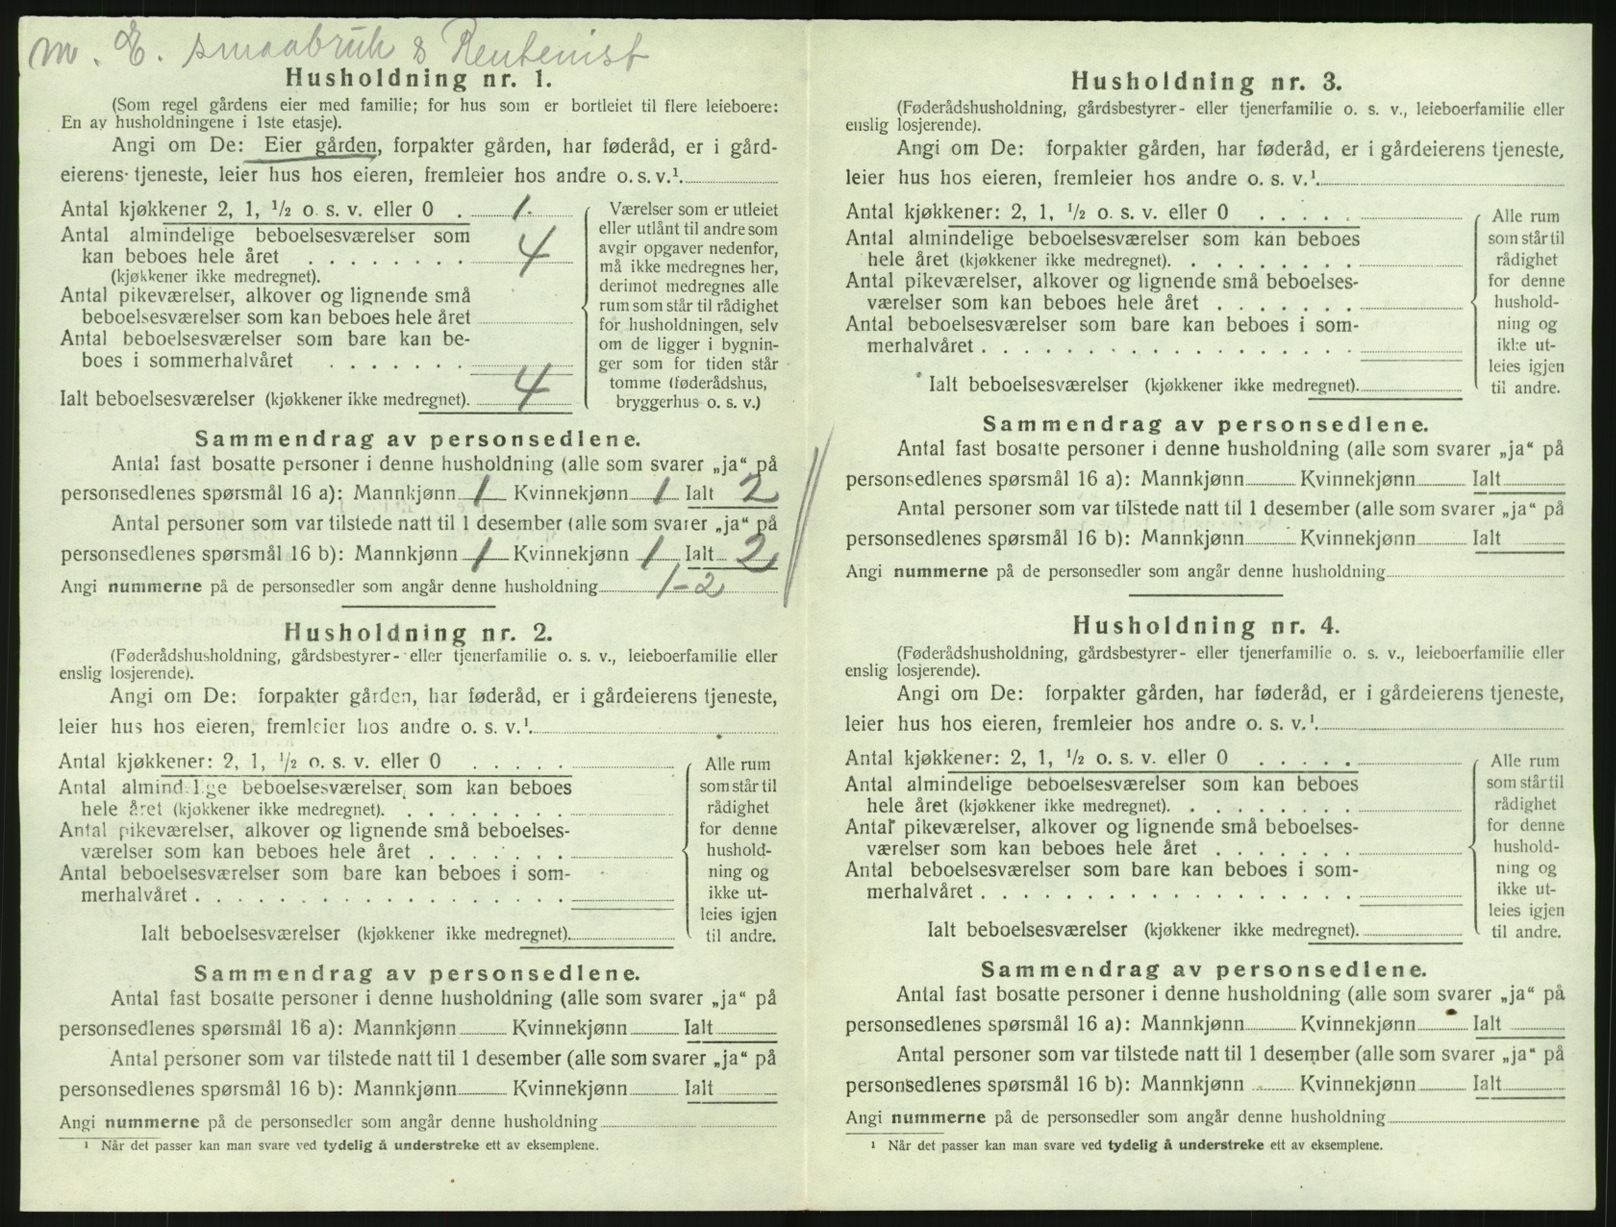 m. E. smaabruk & Rentenist
Husholdning nr. 1.
(Som regel gårdens eier med familie; for hus som er bortleiet til flere leieboere:
En av husholdningene i 1ste etasje).
Angi om De: Eier gården, forpakter gården, har føderåd, er i gård-
eierens tjeneste, leier hus hos eieren, fremleier hos andre o. s. v.¹.
Antal kjøkkener 2, 1, ½ o. s. v. eller 0 . 1.
Antal almindelige beboelsesværelser som
kan beboes hele året . . . . . . . . 4
(kjøkkener ikke medregnet).
Antal pikeværelser, alkover og lignende små
beboelsesværelser som kan beboes hele året
Antal beboelsesværelser som bare kan be-
boes i sommerhalvåret . . . . . . .
Ialt beboelsesværelser (kjøkkener ikke medregnet). 4
Værelser som er utleiet
eller utlånt til andre som
avgir opgaver nedenfor,
må ikke medregnes her,
derimot medregnes alle
rum som står til rådighet
for husholdningen, selv
om de ligger i bygnin-
ger som for tiden står
tomme (føderådshus,
bryggerhus o. s. v.)
Sammendrag av personsedlene.
Antal fast bosatte personer i denne husholdning (alle som svarer „ja“ på
personsedlenes spørsmål 16 a): Mannkjønn 1 Kvinnekjønn 1 Ialt 2
Antal personer som var tilstede natt til 1 desember (alle som svarer „ja“ på
personsedlenes spørsmål 16 b): Mannkjønn 1 Kvinnekjønn 1 Ialt 2
Angi nummerne på de personsedler som angår denne husholdning 1-2
Husholdning nr. 2.
(Føderådshusholdning, gårdsbestyrer- eller tjenerfamilie o. s. v., leieboerfamilie eller
enslig losjerende).
Angi om De: forpakter gården, har føderåd, er i gårdeierens tjeneste,
leier hus hos eieren, fremleier hos andre o. s. v.¹.
Antal kjøkkener: 2, 1, ½ o. s. v. eller 0 . . . . .
Antal almindelige beboelsesværelser som kan beboes
hele året (kjøkkener ikke medregnet). . . . . . . . .
Antal pikeværelser, alkover og lignende små beboelses-
værelser som kan beboes hele året . . . . . . .
Antal beboelsesværelser som bare kan beboes i som-
merhalvåret . . . . . . . . . . . . . . . . . .
Ialt beboelsesværelser (kjøkkener ikke medregnet).
Alle rum
som står til
rådighet
for denne
hushold-
ning og
ikke ut-
leies igjen
til andre.
Sammendrag av personsedlene.
Antal fast bosatte personer i denne husholdning (alle som svarer „ja“ på
personsedlenes spørsmål 16 a): Mannkjønn Kvinnekjønn Ialt
Antal personer som var tilstede natt til 1 desember (alle som svarer „ja“ på
personsedlenes spørsmål 16 b): Mannkjønn Kvinnekjønn Ialt
Angi nummerne på de personsedler som angår denne husholdning
¹ Når det passer kan man svare ved tydelig å understreke ett av eksemplene.
Husholdning nr. 3.
(Føderådshusholdning, gårdsbestyrer- eller tjenerfamilie o. s. v., leieboerfamilie eller
enslig losjerende).
Angi om De: forpakter gården, har føderåd, er i gårdeierens tjeneste,
leier hus hos eieren, fremleier hos andre o. s. v.¹.
Antal kjøkkener: 2, 1, ½ o. s. v. eller 0 . . . . .
Antal almindelige beboelsesværelser som kan beboes
hele året (kjøkkener ikke medregnet). . . . . . . . .
Antal pikeværelser, alkover og lignende små beboelses-
værelser som kan beboes hele året . . . . . . .
Antal beboelsesværelser som bare kan beboes i som-
merhalvåret . . . . . . . . . . . . . . . . . .
Ialt beboelsesværelser (kjøkkener ikke medregnet).
Alle rum
som står til
rådighet
for denne
hushold-
ning og
ikke ut-
leies igjen
til andre.
Sammendrag av personsedlene.
Antal fast bosatte personer i denne husholdning (alle som svarer „ja“ på
personsedlenes spørsmål 16 a): Mannkjønn Kvinnekjønn Ialt
Antal personer som var tilstede natt til 1 desember (alle som svarer „ja“ på
personsedlenes spørsmål 16 b): Mannkjønn Kvinnekjønn Ialt
Angi nummerne på de personsedler som angår denne husholdning
Husholdning nr. 4.
(Føderådshusholdning, gårdsbestyrer- eller tjenerfamilie o. s. v., leieboerfamilie eller
enslig losjerende).
Angi om De: forpakter gården, har føderåd, er i gårdeierens tjeneste,
leier hus hos eieren, fremleier hos andre o. s. v.¹.
Antal kjøkkener: 2, 1, ½ o. s. v. eller 0 . . . . .
Antal almindelige beboelsesværelser som kan beboes
hele året (kjøkkener ikke medregnet). . . . . . . . .
Antal pikeværelser, alkover og lignende små beboelses-
værelser som kan beboes hele året . . . . . . .
Antal beboelsesværelser som bare kan beboes i som-
merhalvåret . . . . . . . . . . . . . . . . . .
Ialt beboelsesværelser (kjøkkener ikke medregnet).
Alle rum
som står til
rådighet
for denne
hushold-
ning og
ikke ut-
leies igjen
til andre.
Sammendrag av personsedlene.
Antal fast bosatte personer i denne husholdning (alle som svarer „ja“ på
personsedlenes spørsmål 16 a): Mannkjønn Kvinnekjønn Ialt
Antal personer som var tilstede natt til 1 desember (alle som svarer „ja“ på
personsedlenes spørsmål 16 b): Mannkjønn Kvinnekjønn Ialt
Angi nummerne på de personsedler som angår denne husholdning
¹ Når det passer kan man svare ved tydelig å understreke ett av eksemplene.